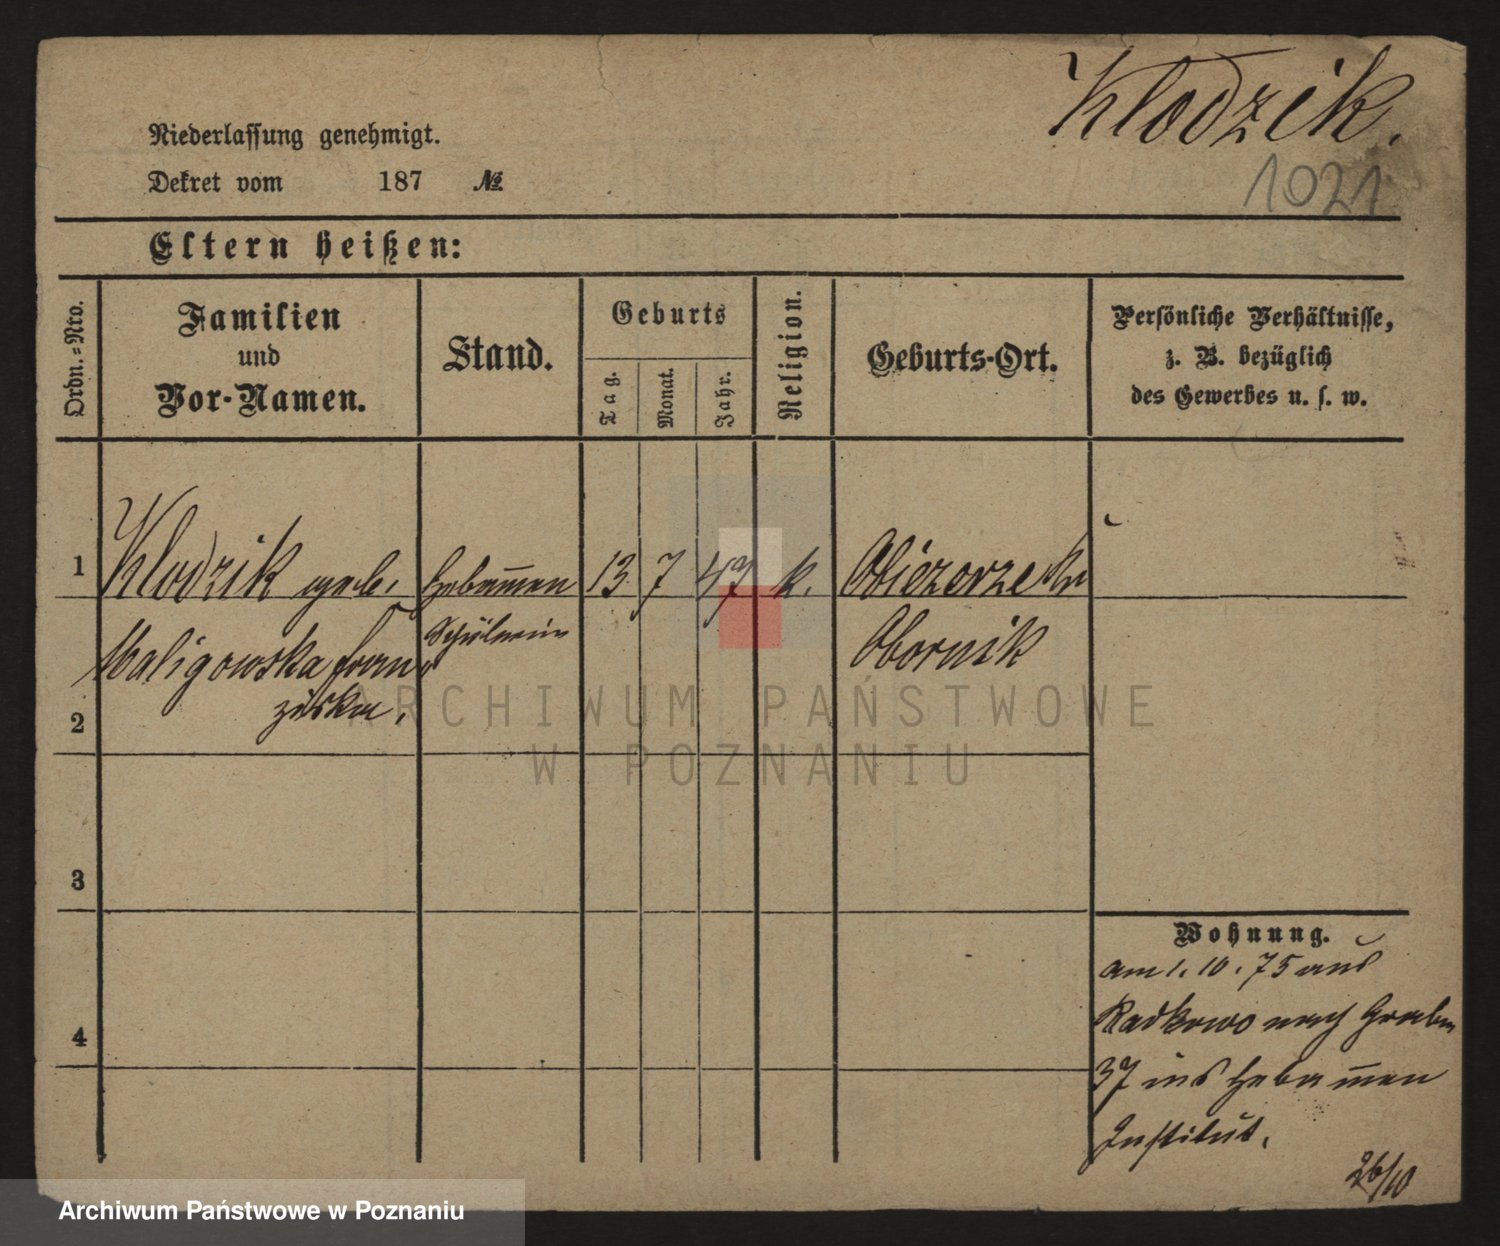 Klodzik.
1021
Niederlassung genehmigt.
Dekret vom 187 №
Eltern heißen:
Ordn.=Nro.
Familien
und
Vor-Namen.
Stand.
Geburts
Tag.
Monat.
Jahr.
Religion.
Geburts-Ort.
Persönliche Verhältnisse,
z. B. bezüglich
des Gewerbes u. s. w.
1
Klodzik geb. Hebam̅en 13 7 47 k. Obiezerze
Schülerin
Maligowska Fran
Obornik
ziska.
2
3
4
Wohnung.
am 1. 10. 75 aus
Radkowo nach Graben
37 ins Hebam̅en
Institut.
26/10
ARCHIWUM PAŃSTWOWE
W POZNANIU
Archiwum Państwowe w Poznaniu